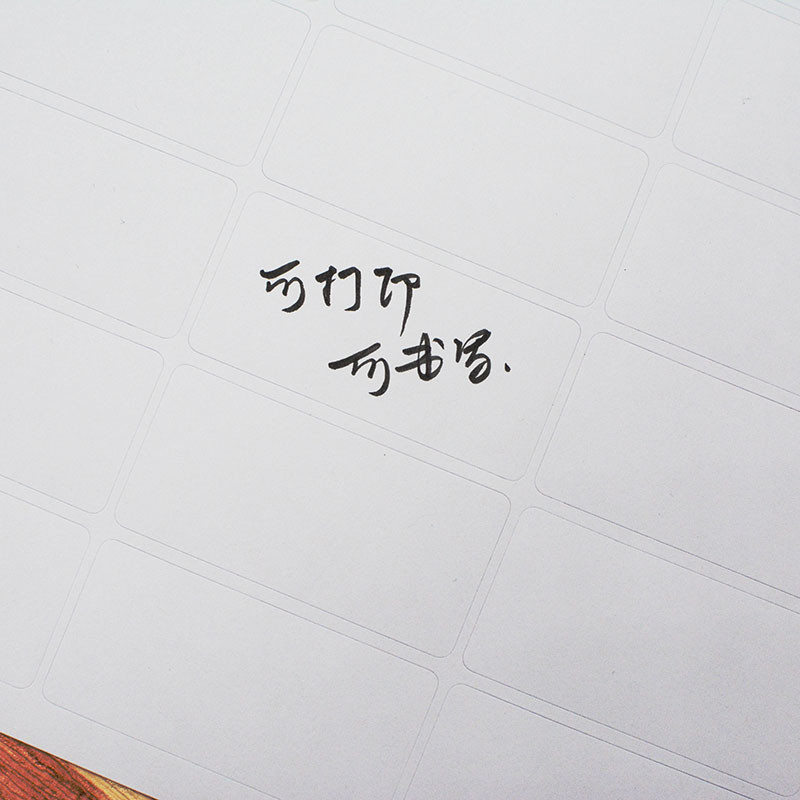 可打印
可书写.